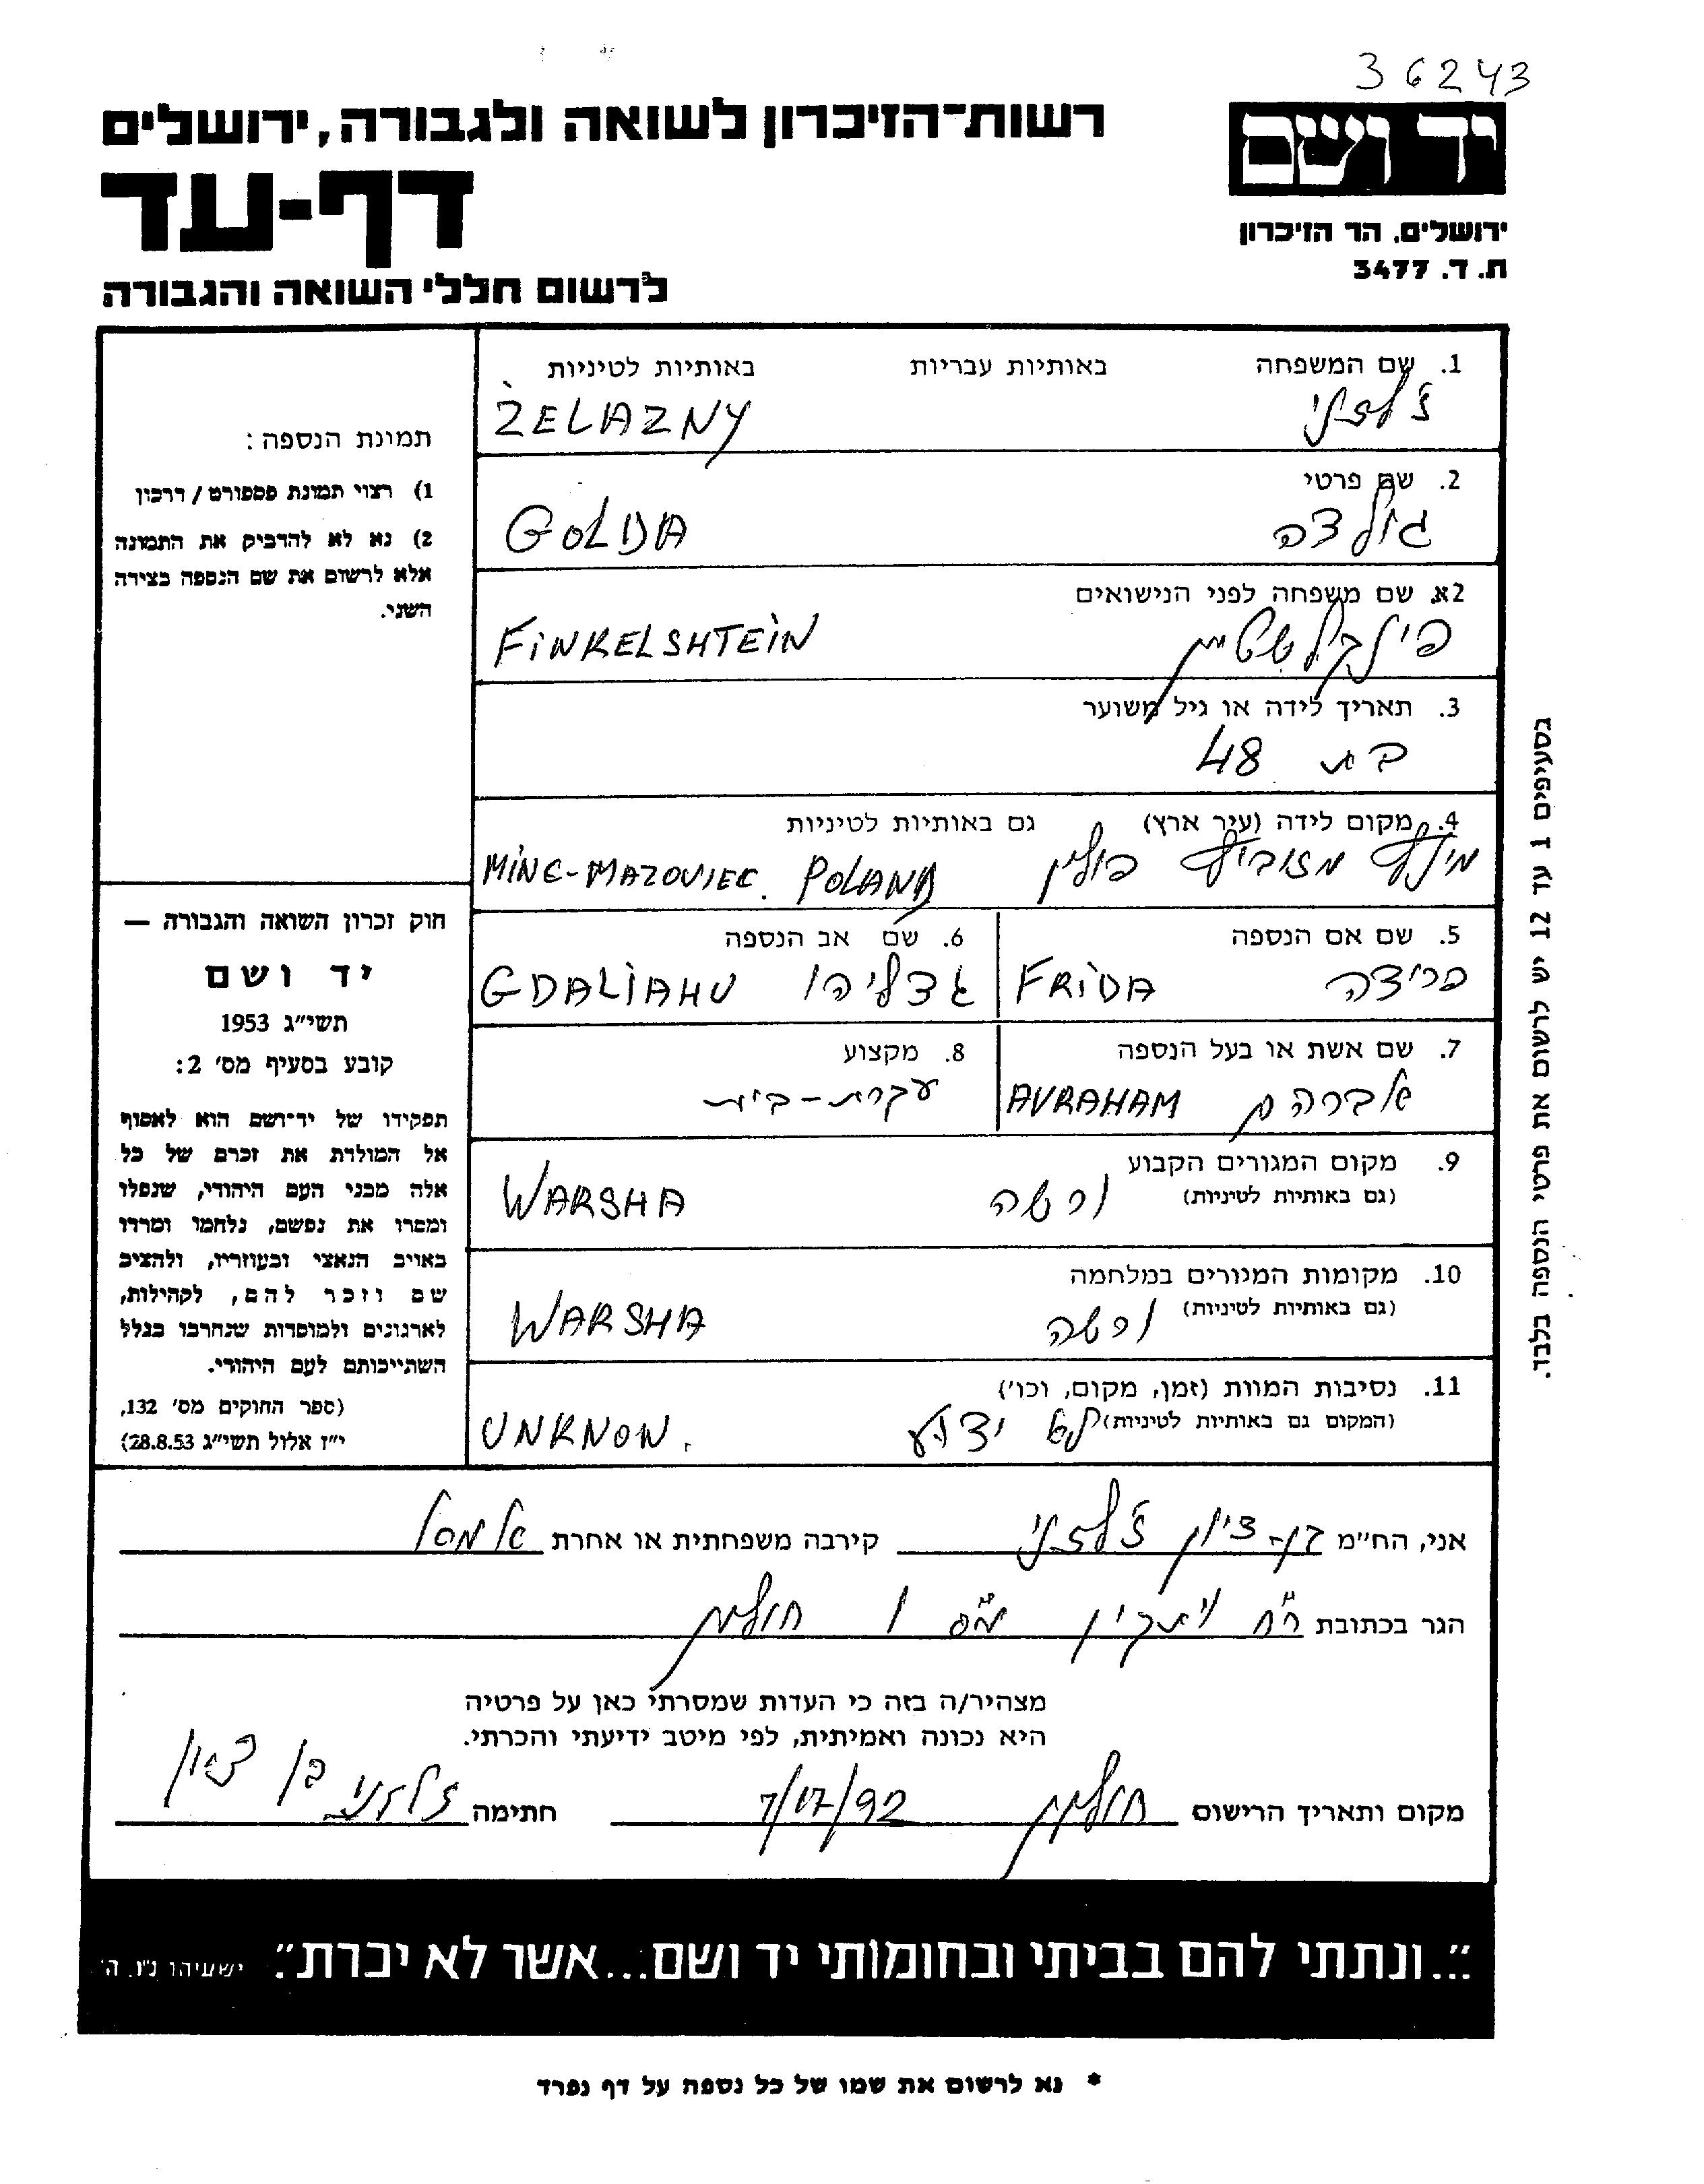 36243
יד ושם
ירושלים, הר הזיכרון
ת. ד. 3477
רשות־הזיכרון לשואה ולגבורה, ירושלים
דף-עד
לרשום חללי השואה והגבורה
1. שם המשפחה באותיות עבריות באותיות לטיניות
ז'לזני ŻELAZNY
2. שם פרטי
גולדה GOLDA
2א. שם משפחה לפני הנישואים
פינקלשטיין FINKELSHTEIN
3. תאריך לידה או גיל משוער
בת 48
4. מקום לידה (עיר ארץ) גם באותיות לטיניות
מינסק מזוביצק פולין MINC-MAZOVIEC. POLAND
5. שם אם הנספה
פרידה FRIDA
6. שם אב הנספה
גדליהו GDALIAHU
7. שם אשת או בעל הנספה
אברהם AVRAHAM
8. מקצוע
עקרת-בית
9. מקום המגורים הקבוע
(גם באותיות לטיניות)
ורשה WARSHA
10. מקומות המגורים במלחמה
(גם באותיות לטיניות)
ורשה WARSHA
11. נסיבות המוות (זמן, מקום, וכו')
(המקום גם באותיות לטיניות)
לא ידוע UNKNOW.
תמונת הנספה:
1) רצוי תמונת פספורט / דרכון
2) נא לא להדביק את התמונה
אלא לרשום את שם הנספה בצידה
השני.
חוק זכרון השואה והגבורה —
יד ושם
תשי"ג 1953
קובע בסעיף מס' 2:
תפקידו של יד־ושם הוא לאסוף
אל המולדת את זכרם של כל
אלה מבני העם היהודי, שנפלו
ומסרו את נפשם, נלחמו ומרדו
באויב הנאצי ובעוזריו, ולהציב
שם וזכר להם, לקהילות,
לארגונים ולמוסדות שנחרבו בגלל
השתייכותם לעם היהודי.
(ספר החוקים מס' 132,
י"ז אלול תשי"ג 28.8.53)
בסעיפים 1 עד 12 יש לרשום את פרטי הנספה בלבד.
אני, הח"מ בן-ציון ז'לזני קירבה משפחתית או אחרת
הגר בכתובת רח' 1 חולון
מצהיר/ה בזה כי העדות שמסרתי כאן על פרטיה
היא נכונה ואמיתית, לפי מיטב ידיעתי והכרתי.
מקום ותאריך הרישום חולון 7/12/92 חתימה ז'לזני בן ציון
"...ונתתי להם בביתי ובחומותי יד ושם...אשר לא יכרת". ישעיהו נ"ו, ה'.
* נא לרשום את שמו של כל נספה על דף נפרד